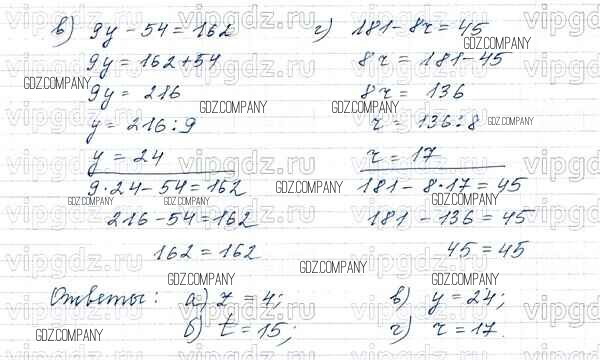 в) 9y - 54 = 162
9y = 162 + 54
9y = 216
y = 216 : 9
y = 24
9 · 24 - 54 = 162
216 - 54 = 162
162 = 162
г) 181 - 8r = 45
8r = 181 - 45
8r = 136
r = 136 : 8
r = 17
181 - 8 · 17 = 45
181 - 136 = 45
45 = 45
Ответы: а) z = 4; в) y = 24;
б) t = 15; г) r = 17.
GDZ.COMPANY
vipgdz.ru